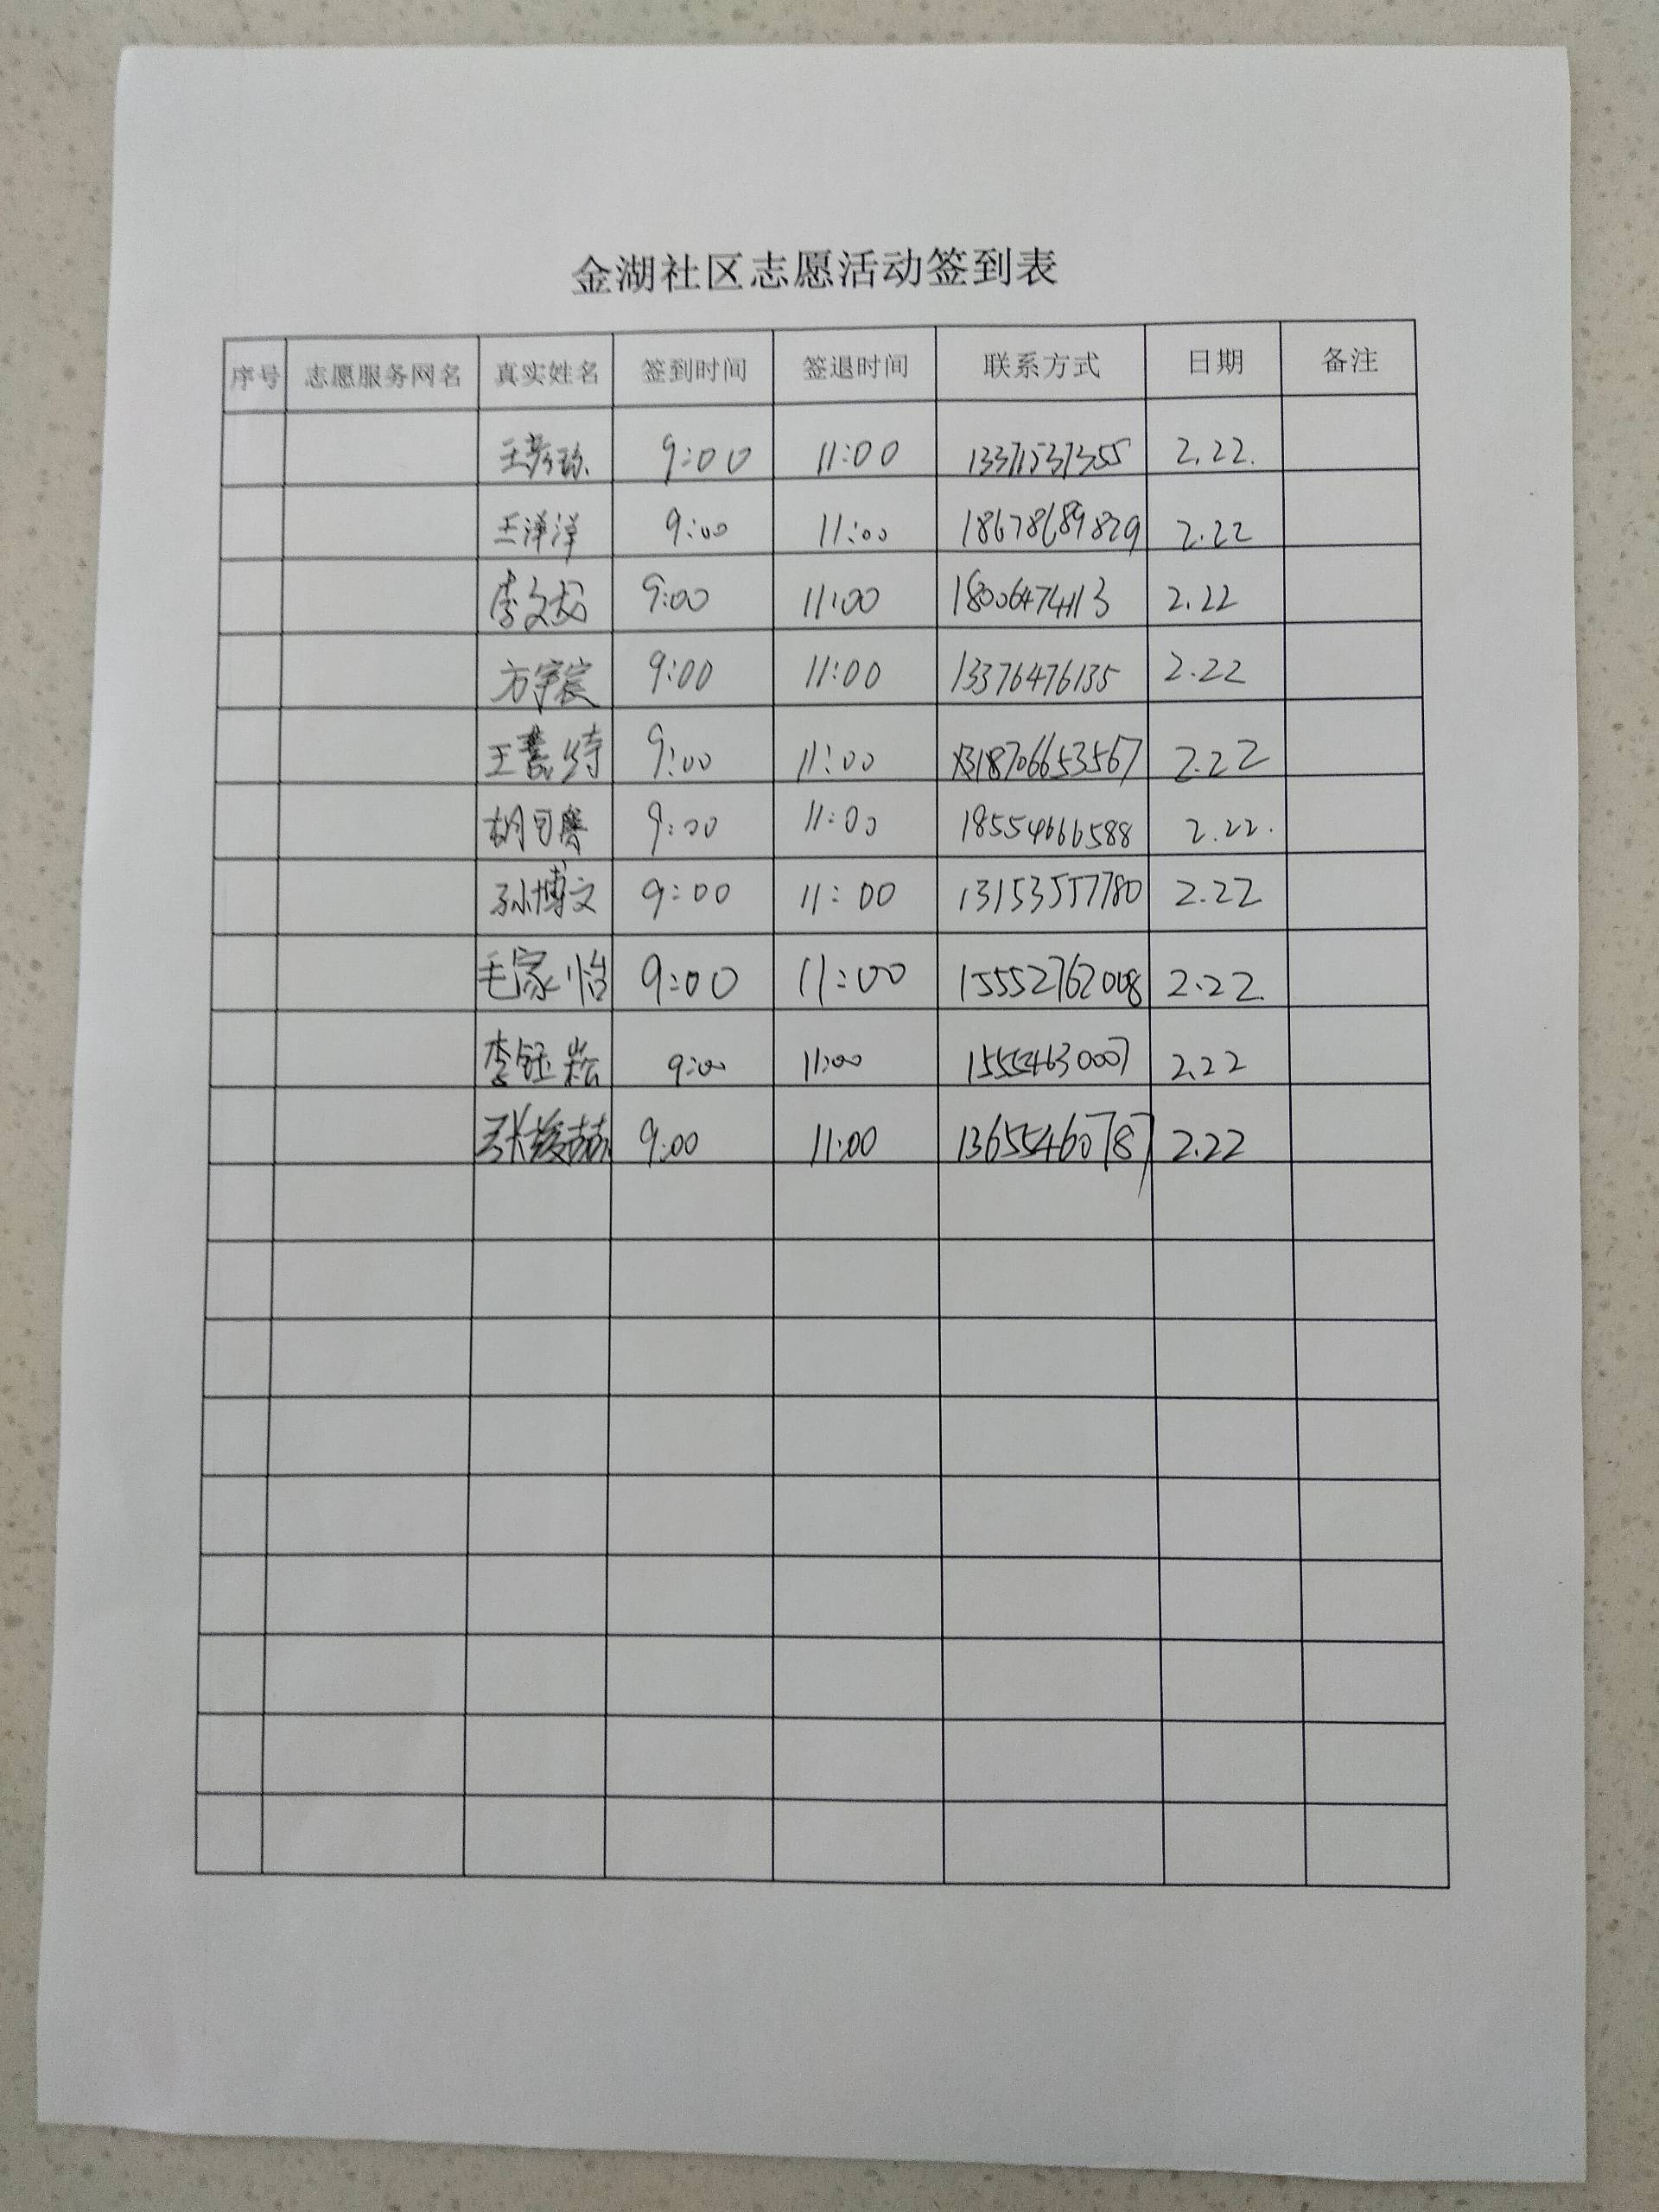 金湖社区志愿活动签到表
序号 志愿服务网名 真实姓名 签到时间 签退时间 联系方式 日期 备注
王彦珍 9:00 11:00 13371537355 2.22.
王洋洋 9:00 11:00 18678689829 2.22
李文龙 9:00 11:00 18006474113 2.22
方宇宸 9:00 11:00 13376476135 2.22
王 9:00 11:00 18706653567 2.22
胡可馨 9:00 11:00 18554666588 2.22.
孙博文 9:00 11:00 13153557780 2.22
毛家怡 9:00 11:00 15552762008 2.22.
李钰崧 9:00 11:00 15554630007 2.22
张赫 9:00 11:00 13655460787 2.22